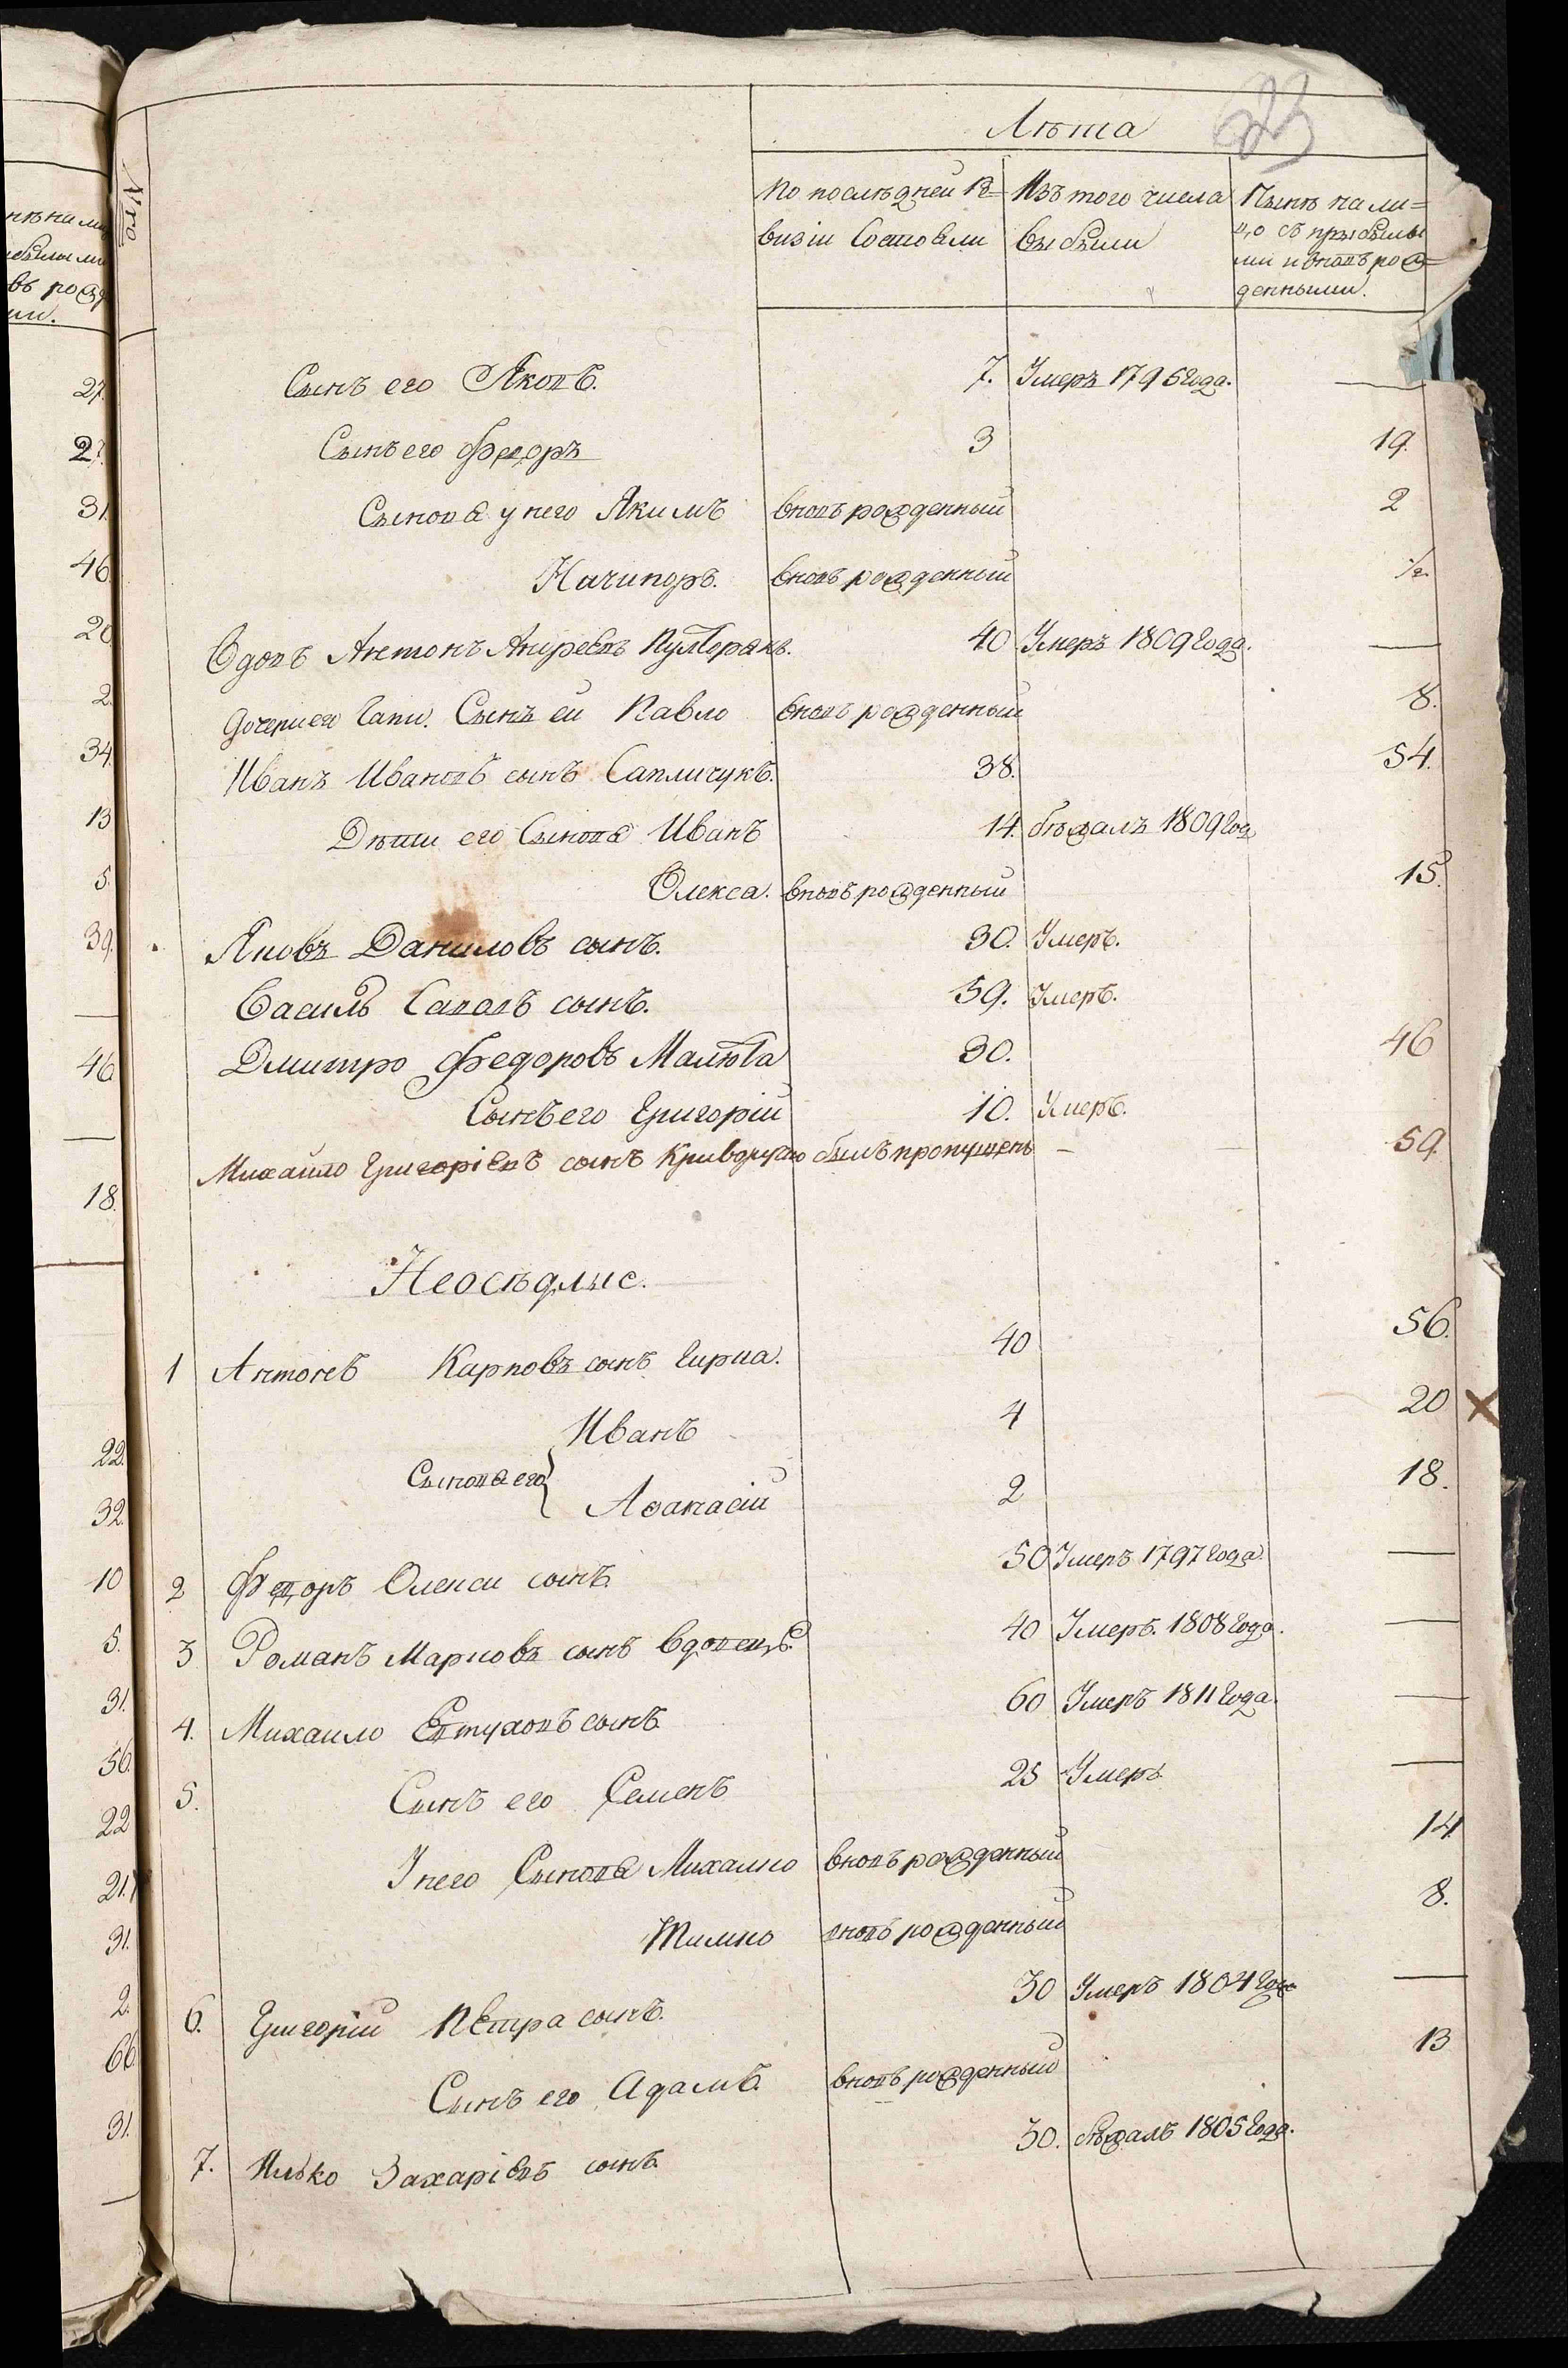 23
Nro
Лѣта
По послѣдней Ре=
визіи Состояли
Изъ того числа
выбыли
Нынѣ на ли=
цо съ прыбылы
ми и вновь рож=
денными.
Сынъ его Яковъ. 7. Умеръ 1795 Года. —
Сынъ его Федоръ 3 19.
Сынова у него Якимъ вновь рожденный 2
Ничипоръ. вновь рожденный 1/2.
Вдовъ Антонъ Андреевъ 40 Умеръ 1809 Года. —
Дочери его Гапи. Сынъ ей Павло вновь рожденный 8.
Иванъ Ивановъ сынъ Сапличукъ. 38. 54.
Дѣти его Сынова Иванъ 14. бѣжалъ 1809 Год
Олекса. вновь рожденный 15.
Яковъ Даниловъ сынъ. 30. Умеръ.
Василь Савовъ сынъ. 59. Умеръ.
Дмитро Федоровъ Малюта 30. 46
Сынъ его Григорій 10. Умеръ.
Михайло Григоріевъ сынъ Криворучко былъ пропущенъ — 59.
Неосѣдлые.
1 Антонъ Карповъ сынъ 40 56.
Иванъ 4 20 ×
Сынова его
Афанасій 2 18.
2 Федоръ Олекси сынъ 50 Умеръ 1797 Года —
3 Романъ Марковъ сынъ вдовецъ. 40 Умеръ. 1808 Года. —
4. Михаило Евтуховъ сынъ 60 Умеръ 1811 Года. —
5. Сынъ его Семенъ 25 Умеръ —
У него Сынова Михаило вновь рожденный 14
Тимко вновь рожденный 8.
6. Григорій Петра сынъ. 30 Умеръ 1804 Года —
Сынъ его Адамъ. вновь рожденный 13
7. Илько Захаріевъ сынъ 30. бѣжалъ 1805 Года.